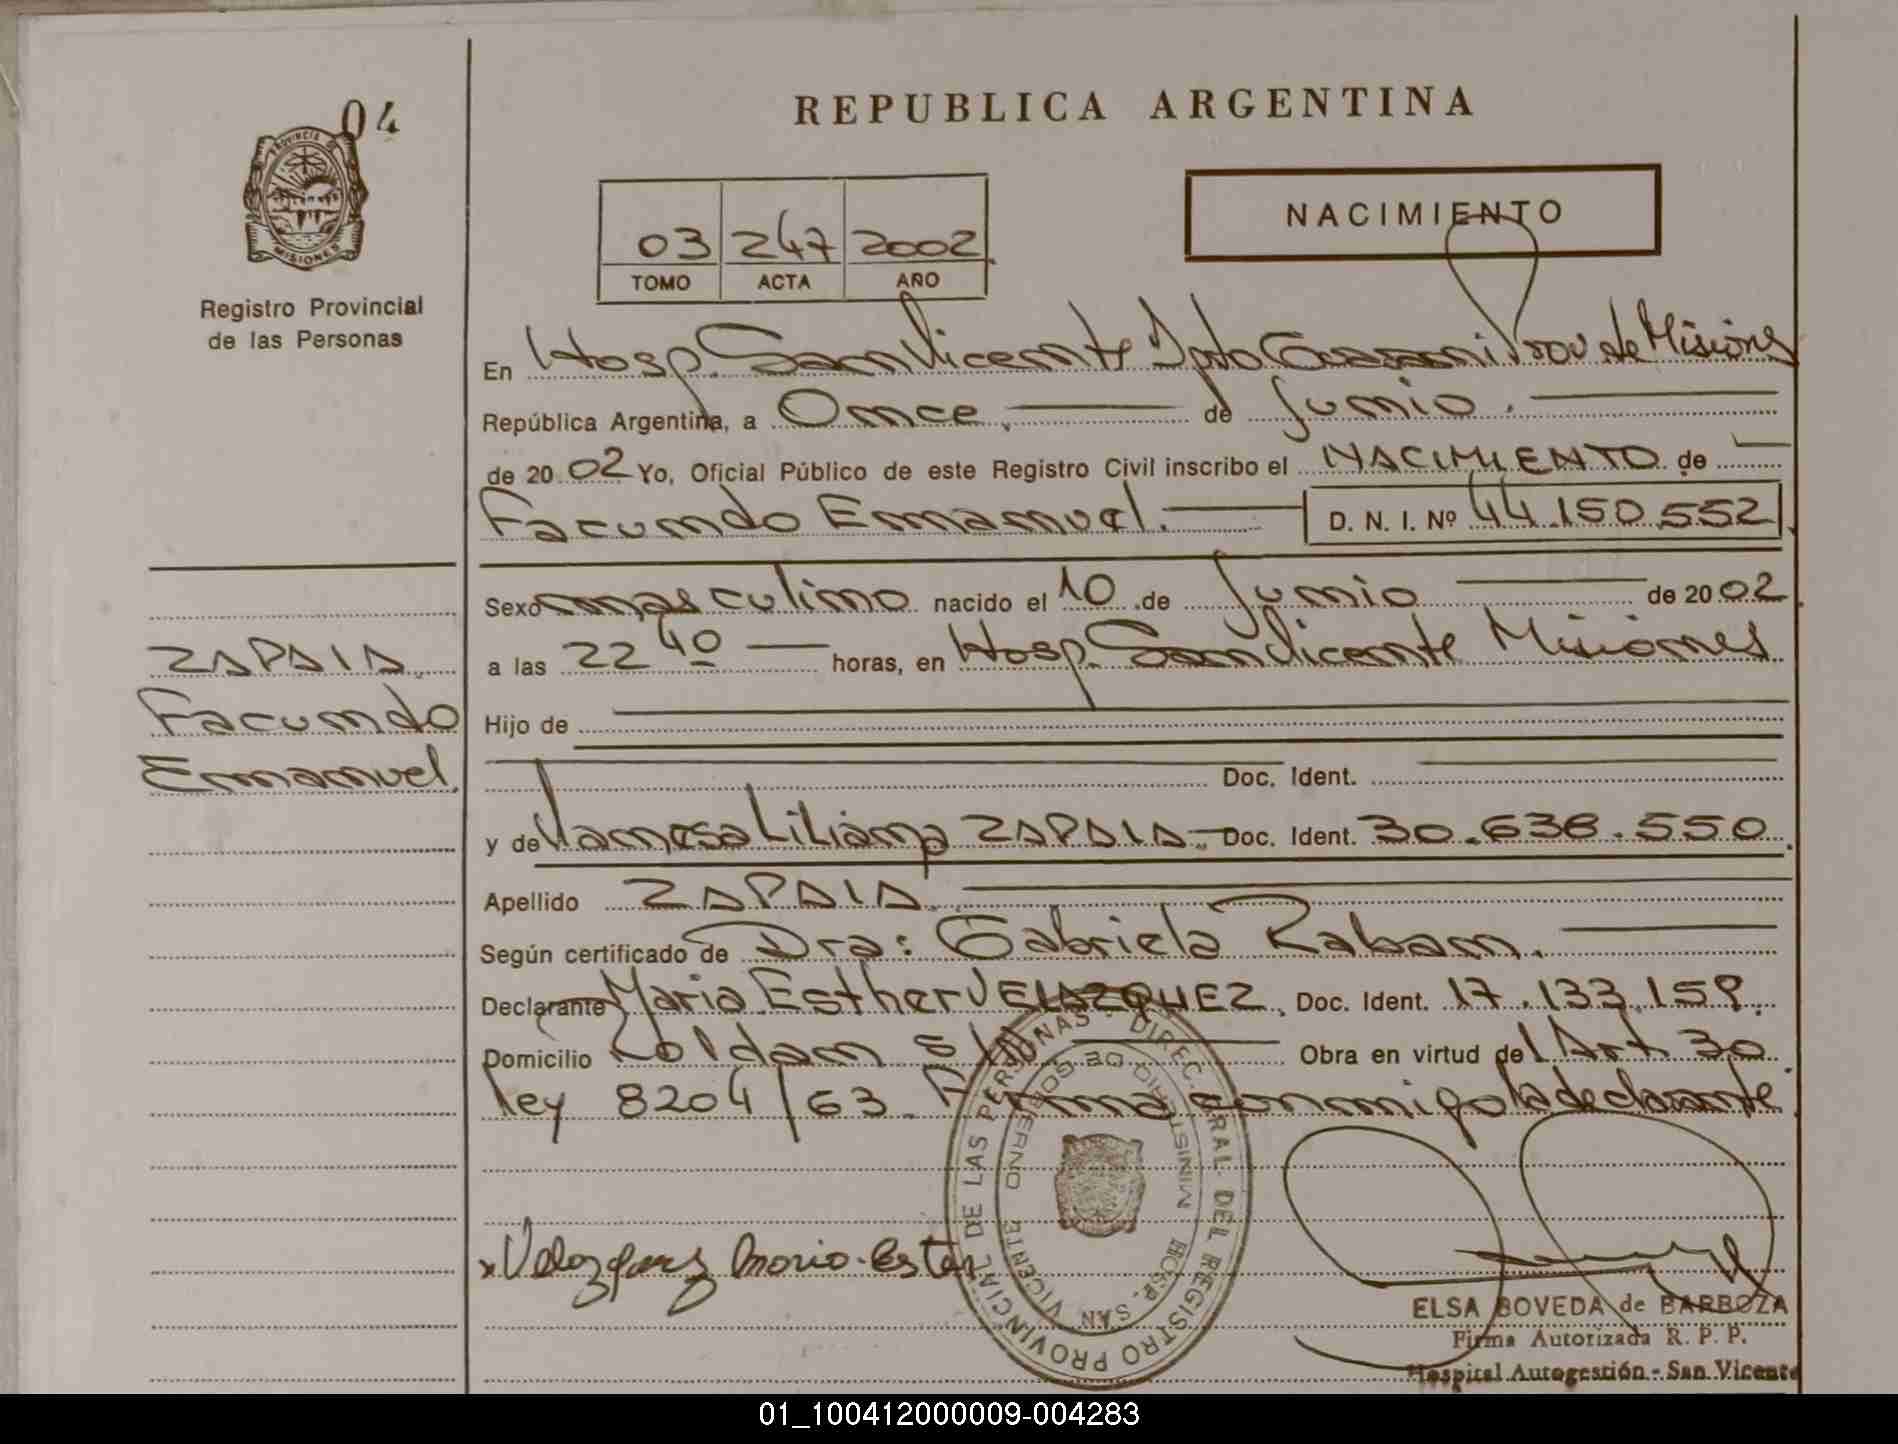 04
PROVINCIA DE
MISIONES
Registro Provincial
de las Personas
REPUBLICA ARGENTINA
03 247 2002
TOMO ACTA AÑO
NACIMIENTO
En Hosp. San Vicente Dpto Guarani Prov de Misiones
República Argentina, a Once. de Junio.
de 20 02 Yo, Oficial Público de este Registro Civil inscribo el NACIMIENTO de
Facundo Emmanuel. D. N. I. Nº 44.150.552
Sexo masculino nacido el 10 de Junio de 20 02
a las 22 40 horas, en Hosp. San Vicente Misiones
Hijo de
Doc. Ident.
y de Vanesa Liliana ZAPAIA Doc. Ident. 30.638.550
Apellido ZAPAIA
Según certificado de Dra: Gabriela Raban.
Declarante Maria Esther VELAZQUEZ. Doc. Ident. 17.133.159.
Domicilio Roldan S/N Obra en virtud del Art 30
ley 8204/63. Firma conmigo la declarante.
ZAPAIA
Facundo
Emmanuel.
x Velazquez Maria Ester
DIREC. GRAL. DEL REGISTRO PROVINCIAL DE LAS PERSONAS
MINISTERIO DE GOBIERNO
HOSP. SAN VICENTE
ELSA BOVEDA de BARBOZA
Firma Autorizada R. P. P.
Hospital Autogestión - San Vicente
01_100412000009-004283